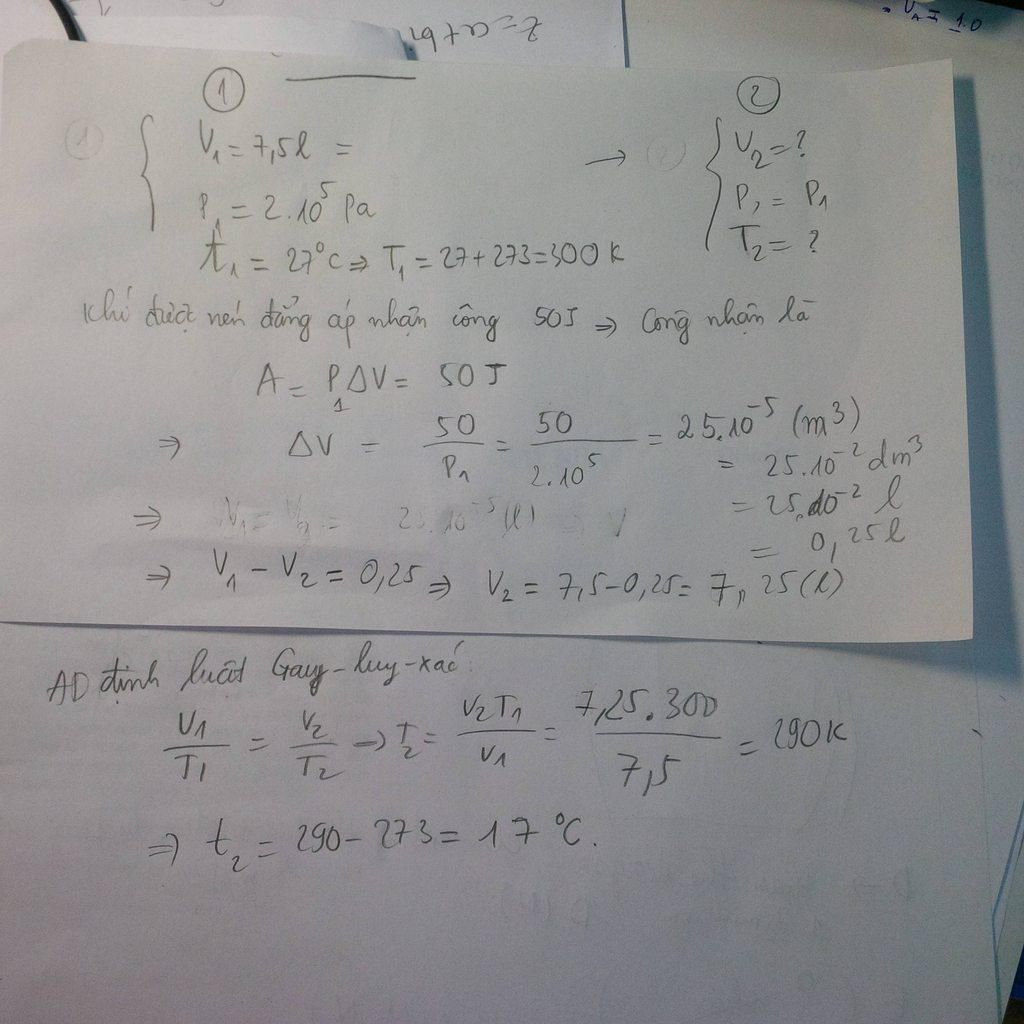 z = a+bi
V_A = 10
① ②
① { V₁ = 7,5l = → ② { V₂ = ?
P₁ = 2.10⁵ Pa P₂ = P₁
t₁ = 27°C ⇒ T₁ = 27+273=300K T₂ = ?
Khí được nén đẳng áp nhận công 50J ⇒ Công nhận là
A = P₁ΔV = 50J
⇒ ΔV = 50/P₁ = 50/2.10⁵ = 25.10⁻⁵ (m³)
= 25.10⁻² dm³
= 25.10⁻² l
⇒ V₁ = V₂ = 25.10⁻⁵ (l)
= 0,25l
⇒ V₁ – V₂ = 0,25 ⇒ V₂ = 7,5–0,25= 7,25(l)
AD định luật Gay-luy-xác:
V₁/T₁ = V₂/T₂ → T₂ = V₂T₁/V₁ = 7,25.300/7,5 = 290K
⇒ t₂ = 290 – 273 = 17°C.